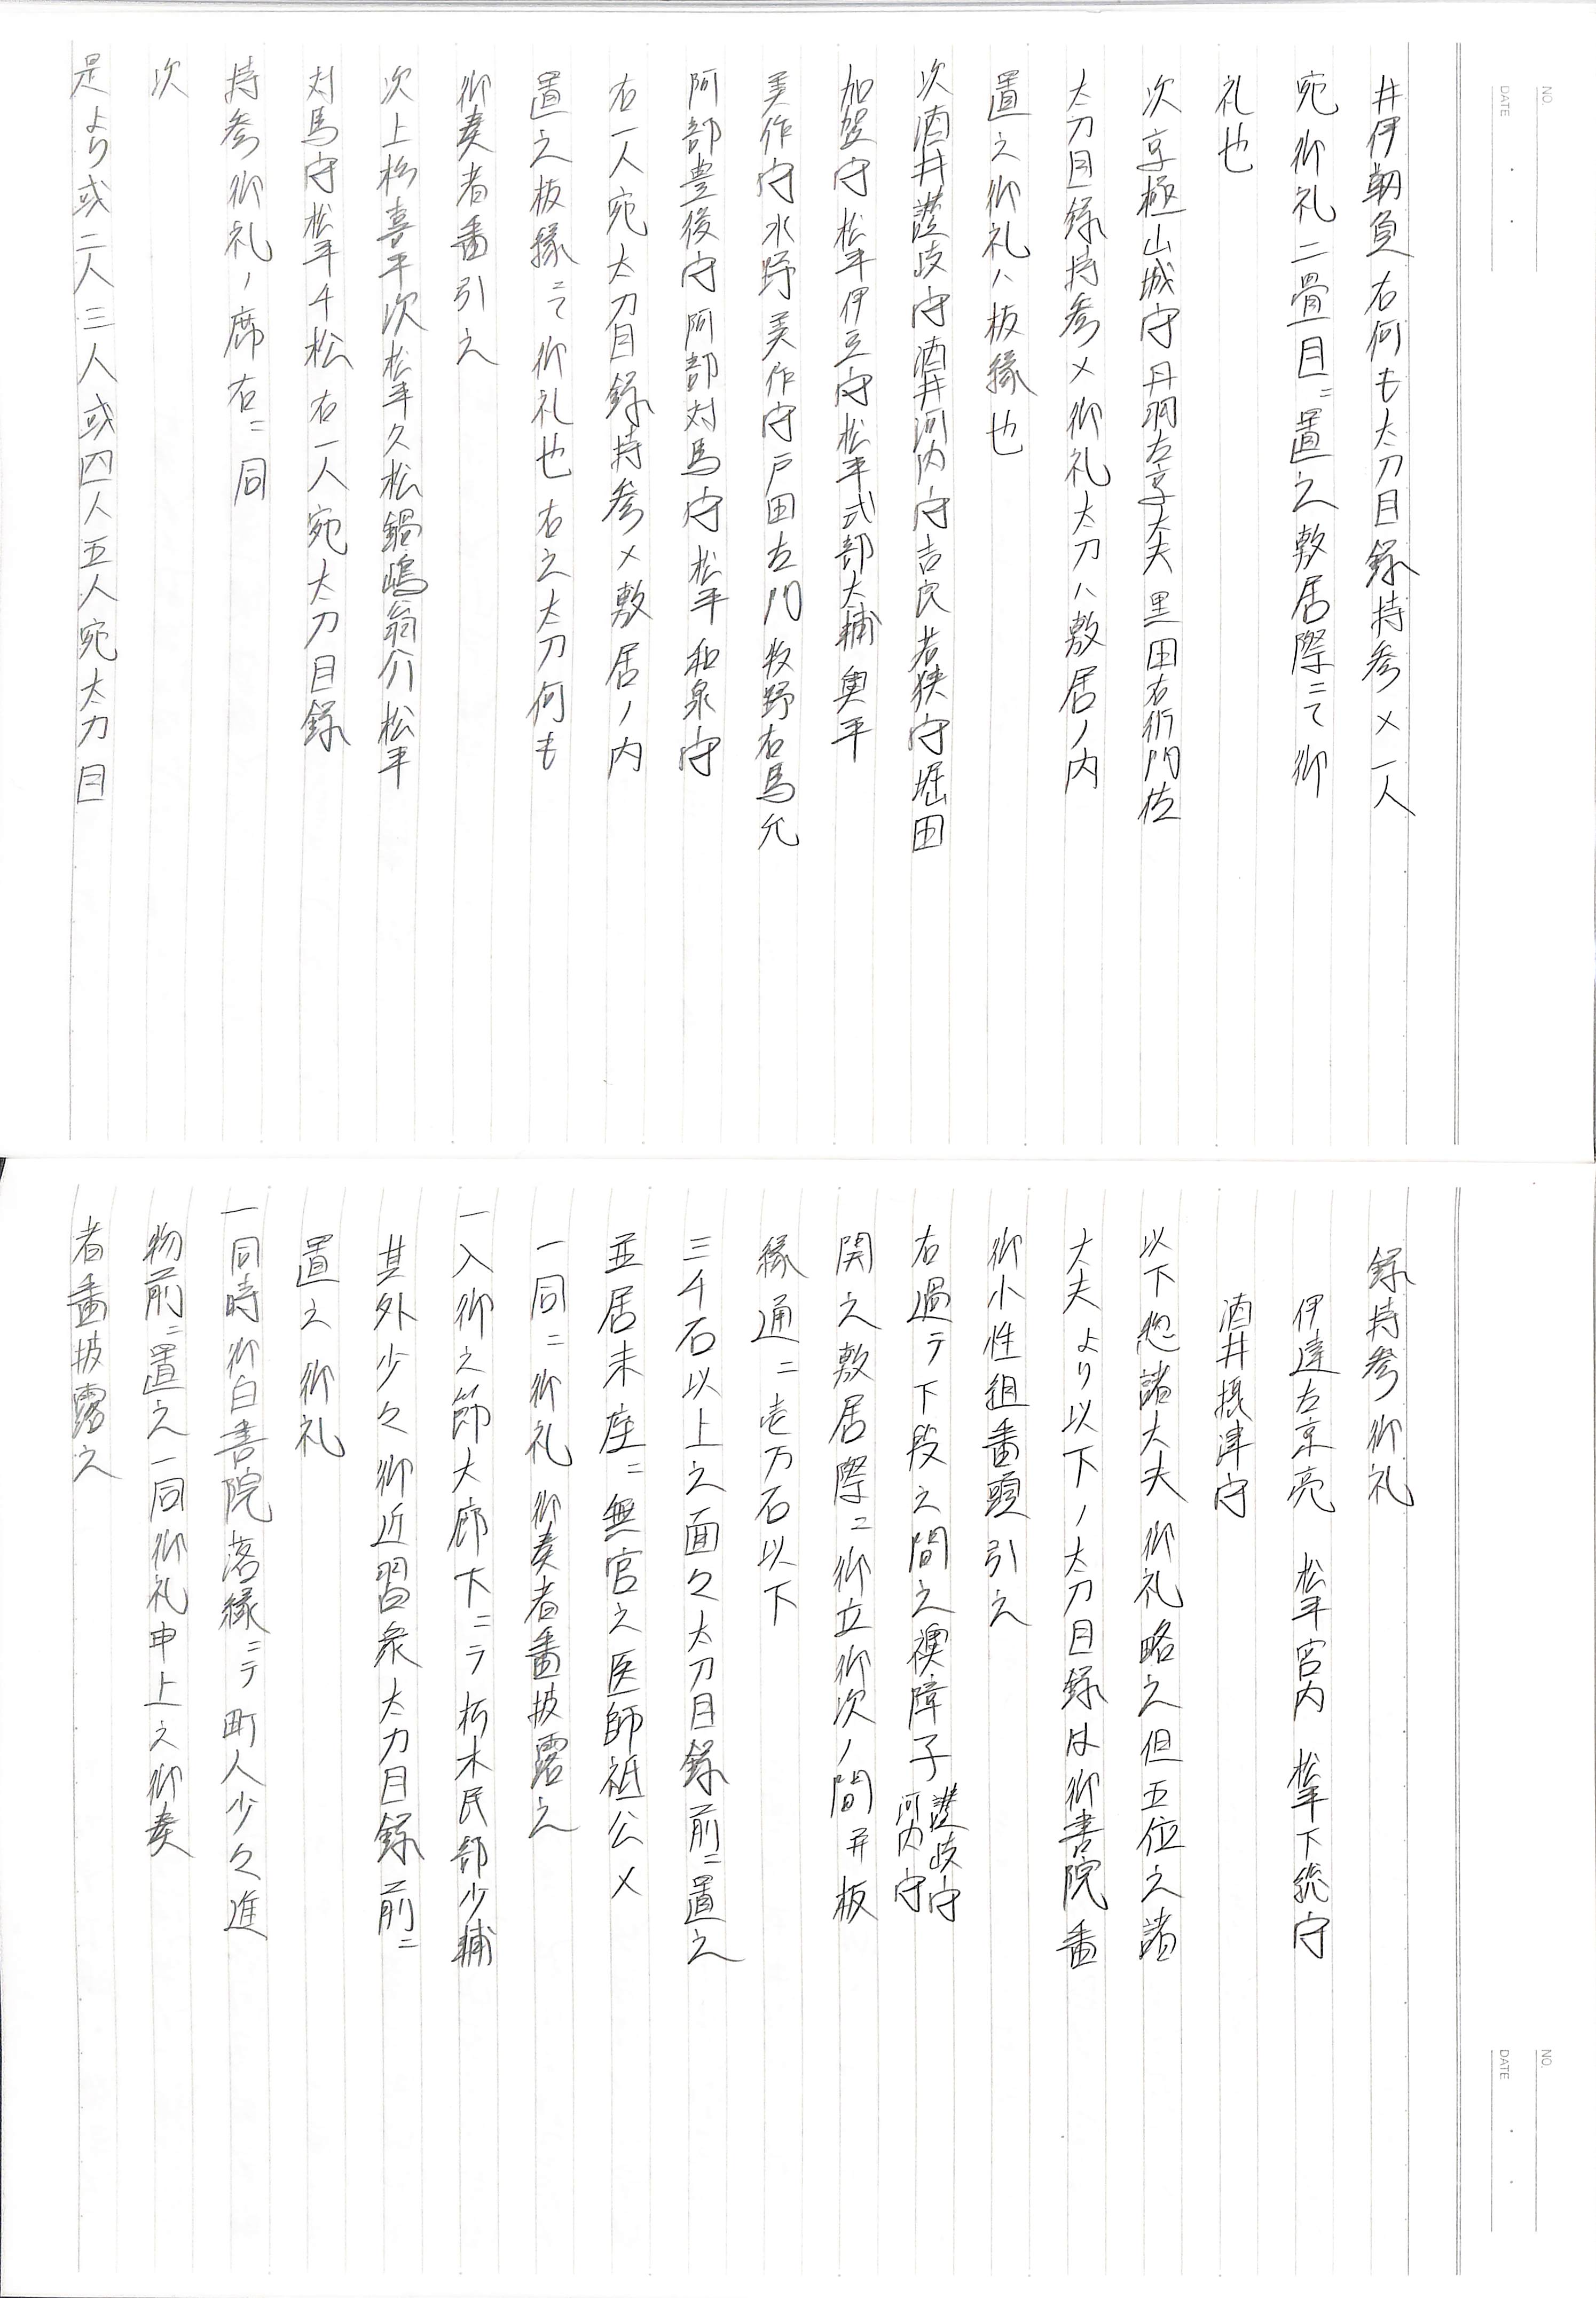 NO.
DATE
井伊靭負右何も太刀目録持参〆一人
宛御礼二畳目ニ置之敷居際ニて御
礼也
次京極山城守丹羽左京大夫黒田右衛門佐
太刀目録持参〆御礼太刀ハ敷居ノ内
置之御礼ハ板縁也
次酒井讃岐守酒井河内守吉良若狭守堀田
加賀守松平伊豆守松平式部大輔奥平
美作守水野美作守戸田左門牧野右馬允
阿部豊後守阿部対馬守松平和泉守
右一人宛太刀目録持参〆敷居ノ内
置之板縁ニて御礼也右之太刀何も
御奏者番引之
次上杉喜平次松平久松鍋嶋翁介松平
対馬守松平千松右一人宛太刀目録
持参御礼ノ席右ニ同
次
是より或二人三人或四人五人宛太刀目
NO.
DATE
録持参御礼
伊達左京亮 松平宮内 松平下総守
酒井摂津守
以下惣諸大夫御礼略之但五位之諸
大夫より以下ノ太刀目録は御書院番
御小性組番頭引之
右過テ下段之間之襖障子讃岐守河内守
開之敷居際ニ御立御次ノ間并板
縁通ニ壱万石以下
三千石以上之面々太刀目録前ニ置之
並居末座ニ無官之医師祗公〆
一同ニ御礼御奏者番披露之
一入御之節大廊下ニテ朽木民部少輔
其外少々御近習衆太刀目録前ニ
置之御礼
一同時御白書院落縁ニテ町人少々進
物前ニ置之一同御礼申上之御奏
者番披露之